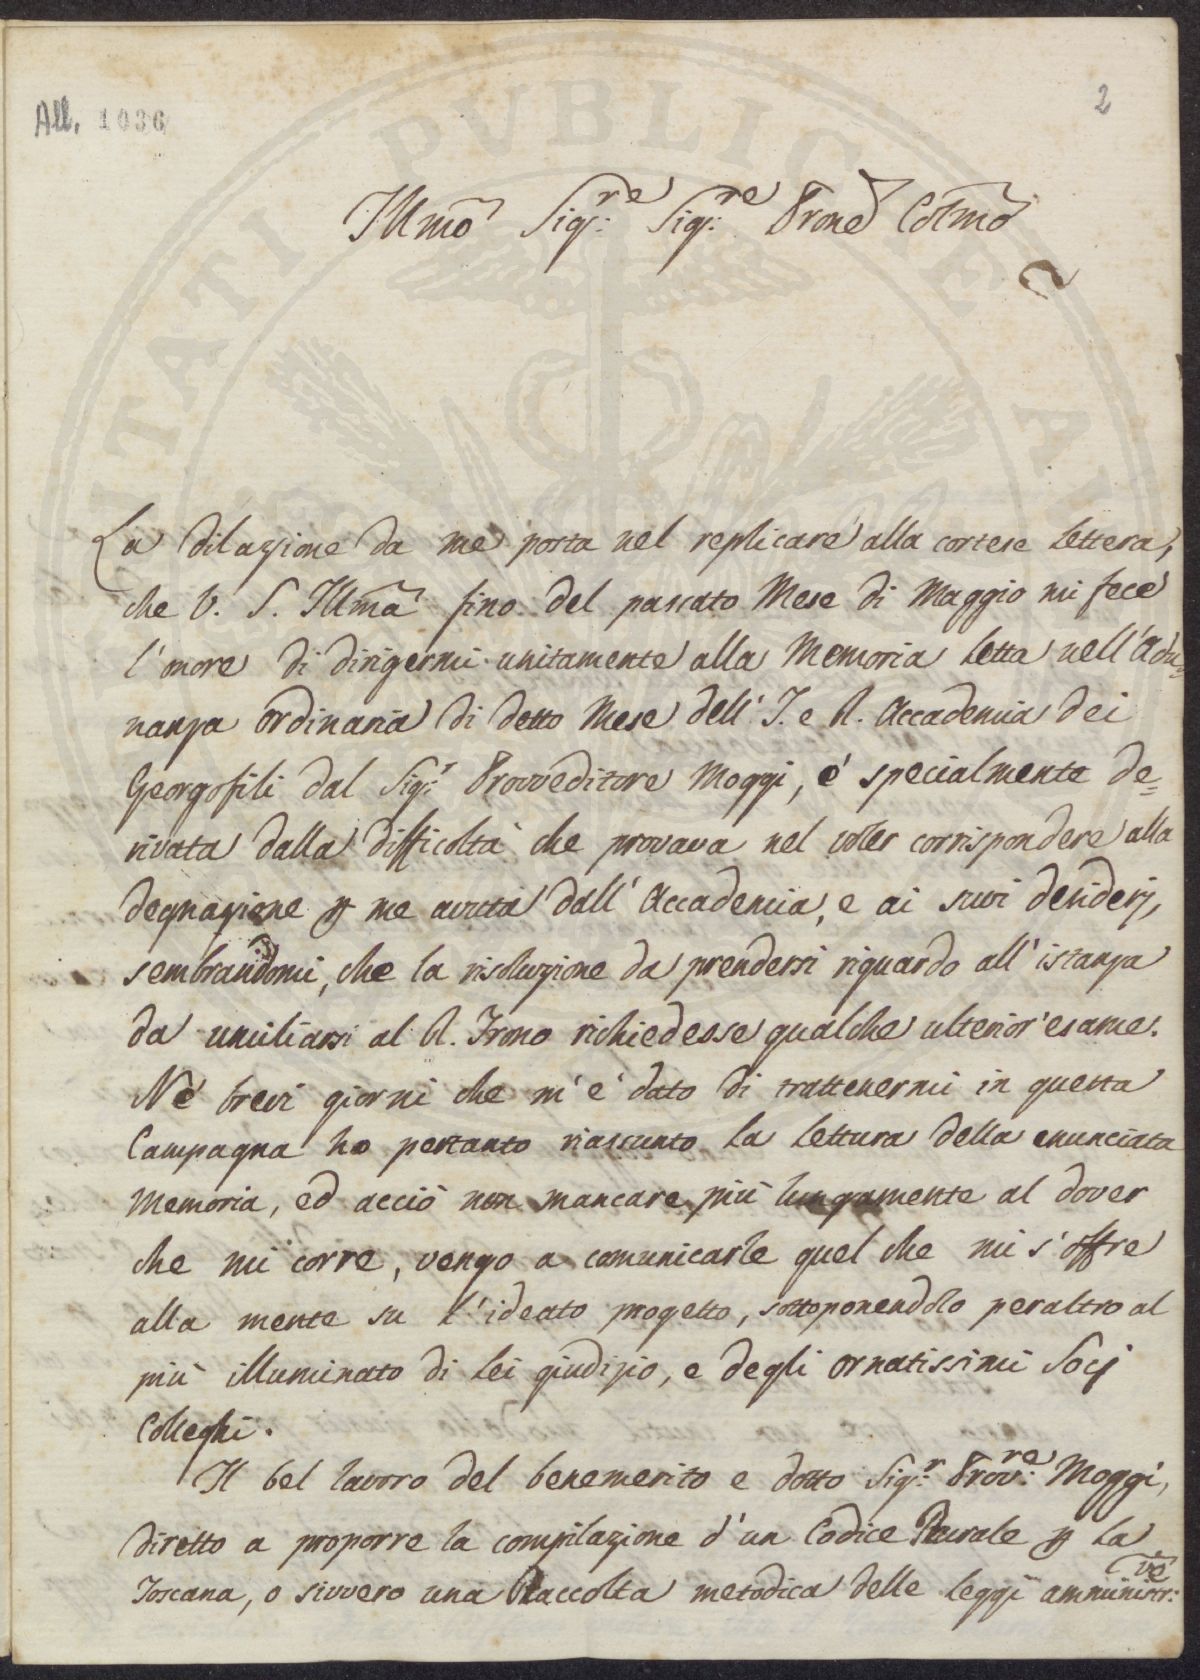 All. 1036
2
Illmo Sigre: Sigre: Prone Colmo
La dilazione da me posta nel replicare alla cortese Lettera,
che V. S. Illma fino del passato Mese di Maggio mi fece
l'onore di dirigermi unitamente alla Memoria Letta nell'Adu=
nanza ordinaria di detto Mese dell' I. e R. Accademia dei
Georgofili dal Sigr: Provveditore Moggi, è specialmente de=
rivata dalla difficoltà che provava nel voler corrispondere alla
degnazione p me avuta dall' Accademia, e ai suoi desiderj,
sembrandomi, che la risoluzione da prendersi riguardo all' istanza
da umiliarsi al R. Trono richiedesse qualche ulterior' esame.
Ne' brevi giorni che m'è dato di trattenermi in questa
Campagna ho pertanto riassunto la Lettura della enunciata
Memoria, ed acciò non mancare più lungamente al dover
che mi corre, vengo a comunicarle quel che mi s'offre
alla mente su l'ideato progetto, sottoponendolo peraltro al
più illuminato di Lei giudizio, e degli ornatissimi Socj
Colleghi.
Il bel lavoro del benemerito e dotto Sigr: Provre: Moggi,
diretto a proporre la compilazione d'un Codice Rurale p la
Toscana, o sivvero una Raccolta metodica delle Leggi amministr:ve
PVBLICAE